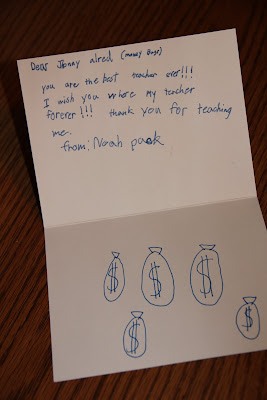 Dear Jonny alred (money Bags)
you are the best teacher ever!!!
I wish you where my teacher
forever!!! thank you for teaching
me.
from: Noah pack
$ $ $
$ $